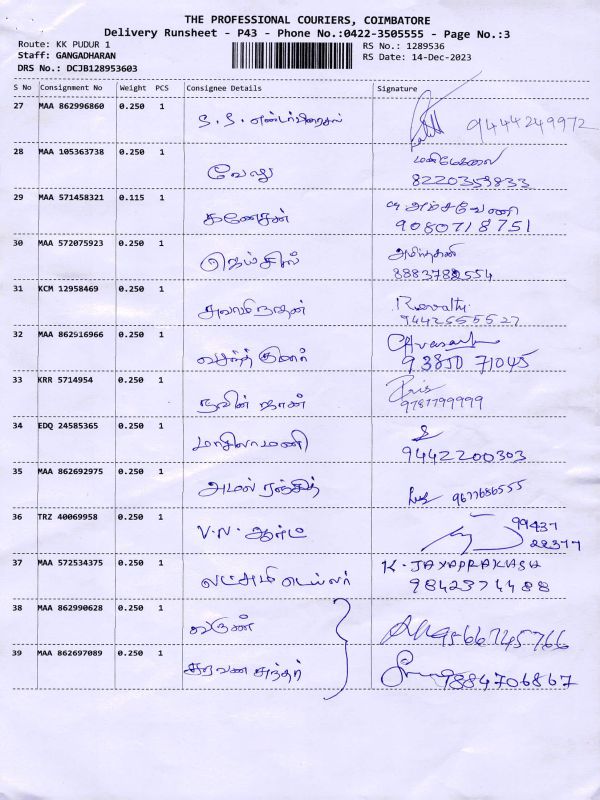 THE PROFESSIONAL COURIERS, COIMBATORE
Delivery Runsheet - P43 - Phone No.:0422-3505555 - Page No.:3
Route: KK PUDUR 1
RS No.: 1289536
Staff: GANGADHARAN
RS Date: 14-Dec-2023
DRS No.: DCJB128953603
S No Consignment No Weight PCS Consignee Details Signature
27 MAA 862996860 0.250 1
S.S. எண்டர்பிரைசஸ்
9444249972
28 MAA 105363738 0.250 1
வேலு
மணிமேகலை
8220359833
29 MAA 571458321 0.115 1
கணேசன்
9080718751
30 MAA 572075923 0.250 1
8883782554
31 KCM 12958469 0.250 1
சுவாமிநாதன்
Revathi
32 MAA 862516966 0.250 1
வசந்த் குமார்
93850 71045
33 KRR 5714954 0.250 1
நவின் நாகன்
9787799999
34 EDQ 24585365 0.250 1
மாசிலாமணி
9442200303
35 MAA 862692975 0.250 1
அமல் ரஞ்சித்
9677686555
36 TRZ 40069958 0.250 1
V.N. ஆர்ட்
99437
22377
37 MAA 572534375 0.250 1
லட்சுமி டெய்லர்
K. JAYAPRAKASH
9842374488
38 MAA 862990628 0.250 1
வருண்
9566745766
39 MAA 862697089 0.250 1
சரவண சுந்தர்
9884706867